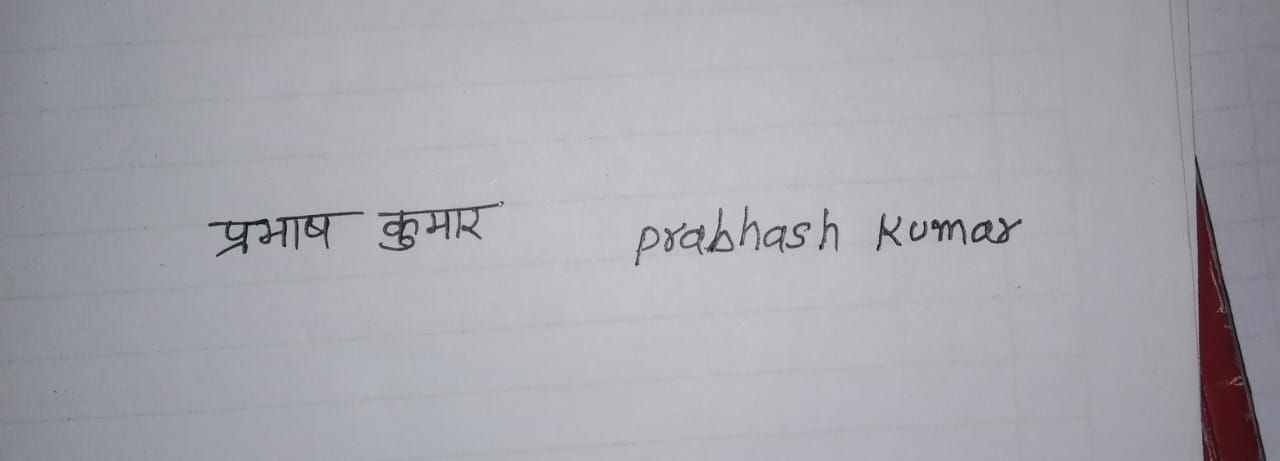 प्रभाष कुमार prabhash Kumar